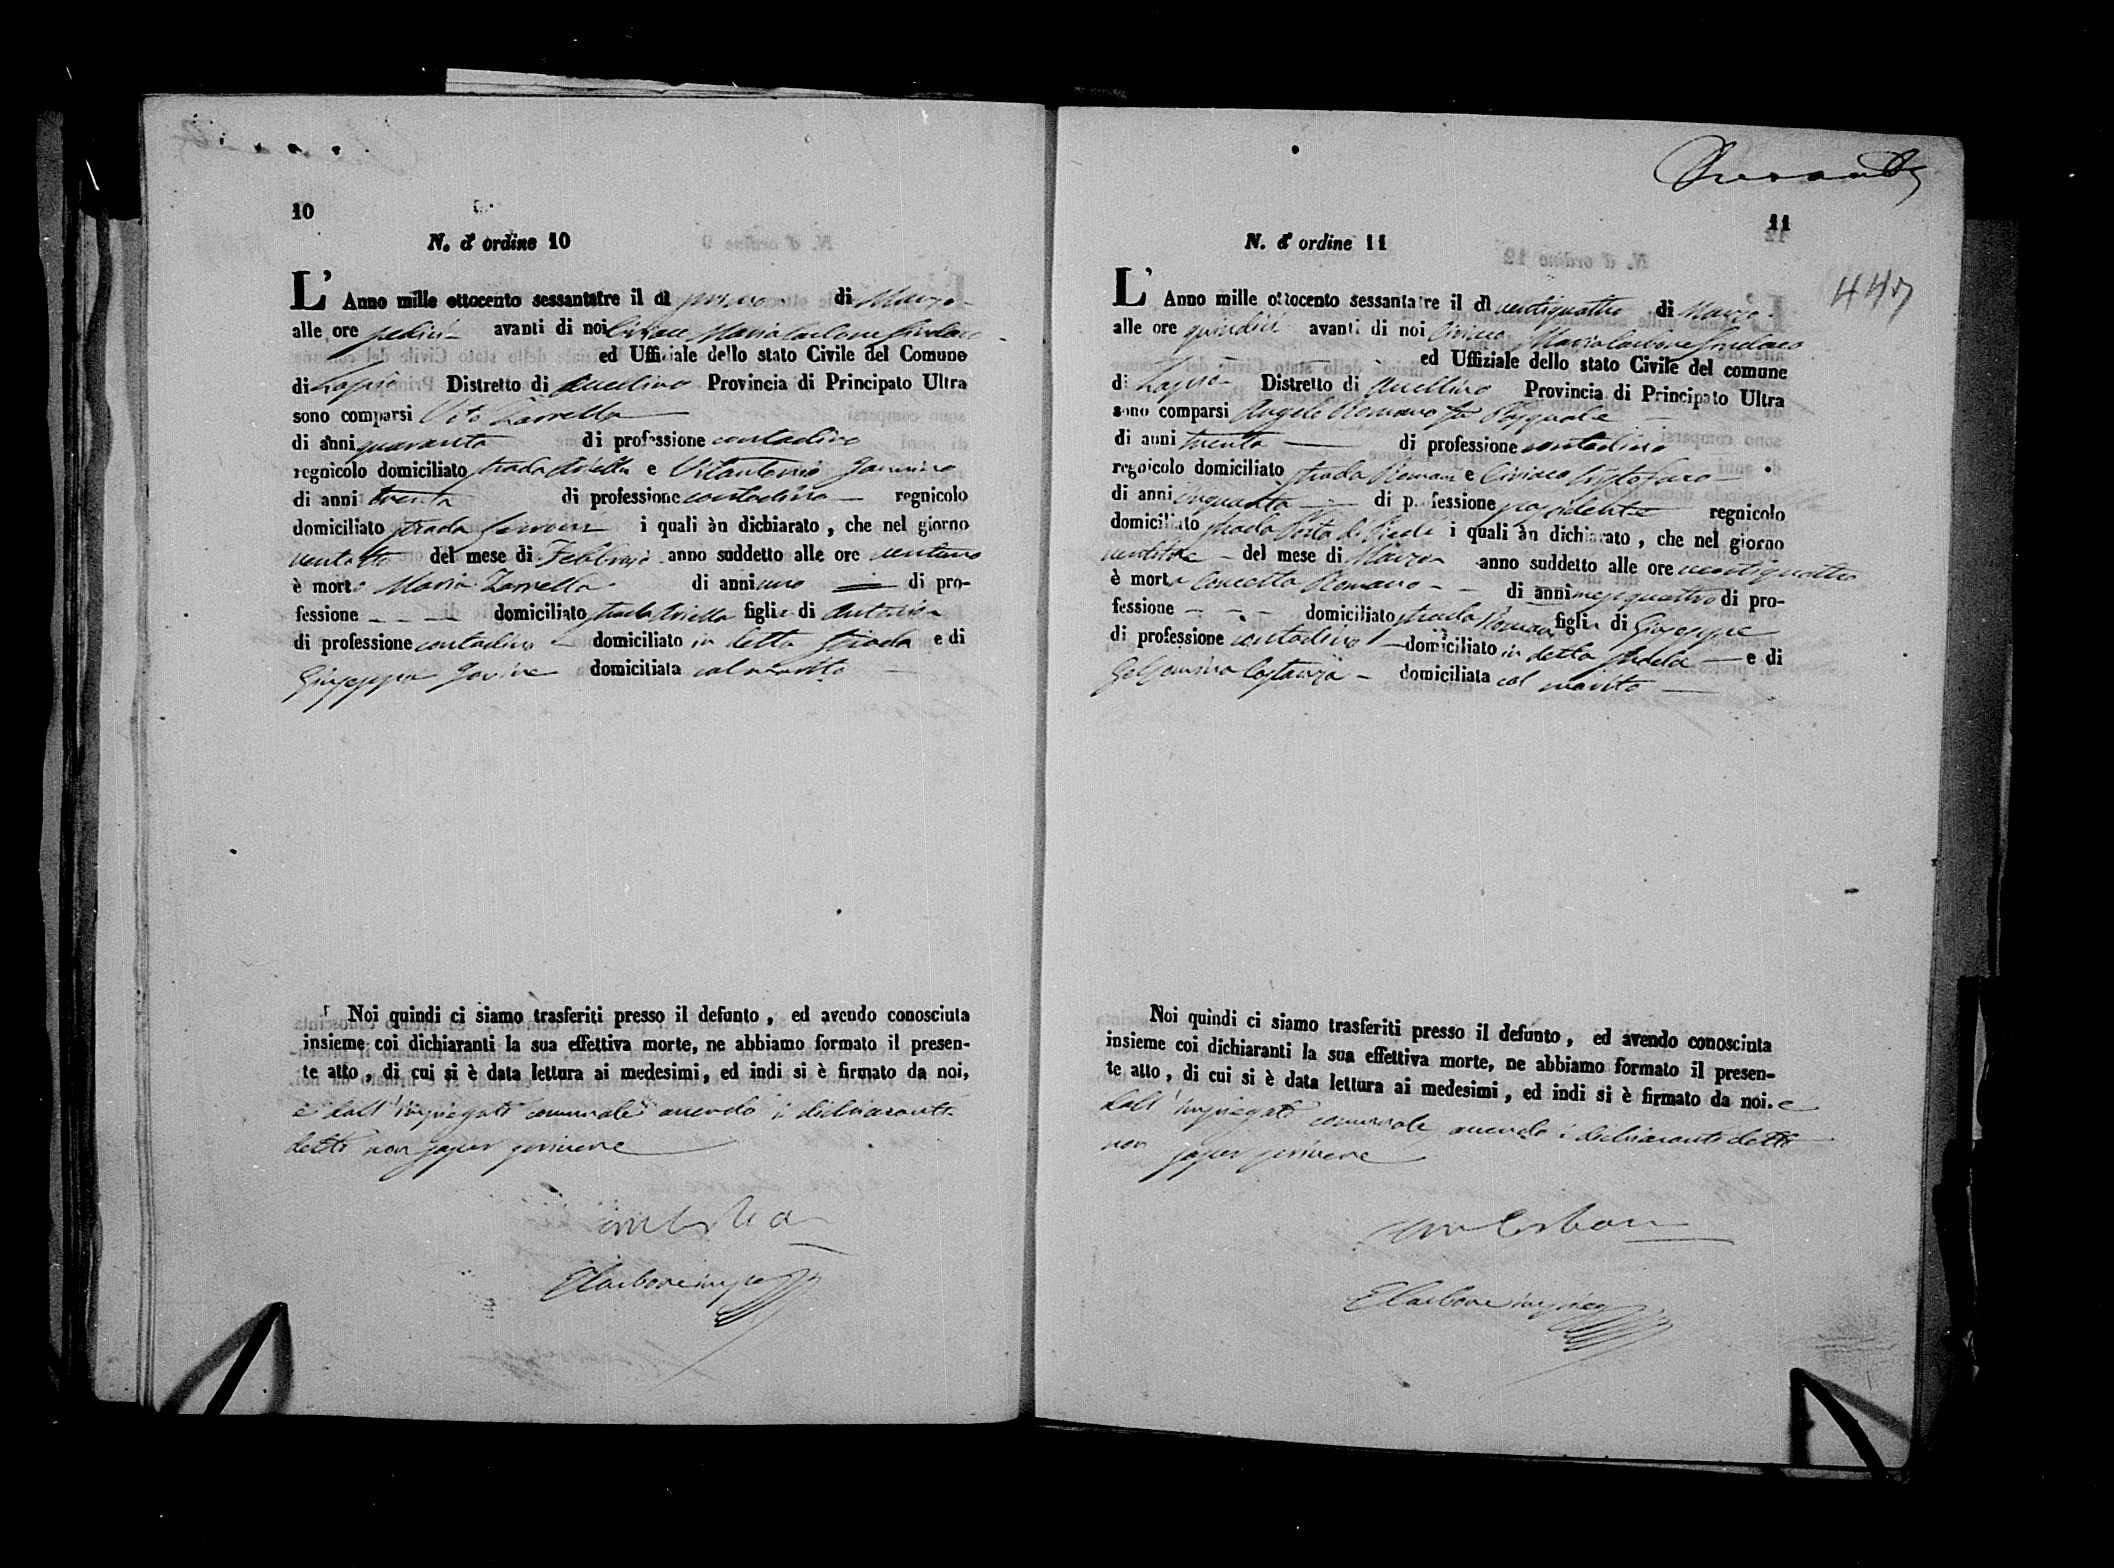 10
N. d' ordine 10
L' Anno mille ottocento sessantatre il dì primo di Marzo
alle ore sedici avanti di noi Ciriaco Maria Carbone Sindaco
ed Uffiziale dello stato Civile del Comune
di Lapio Distretto di Avellino Provincia di Principato Ultra
sono comparsi Vito Zarrella
di anni quaranta di professione contadino
regnicolo domiciliato strada e Vitantonio
di anni trenta di professione contadino regnicolo
domiciliato strada i quali àn dichiarato , che nel giorno
ventotto del mese di Febbrajo anno suddetto alle ore ventuno
è morta Maria Zarrella di anni uno di pro-
fessione domiciliato strada figlia di Antonio
di professione contadino domiciliato in detta strada e di
Giuseppa Jovine domiciliata col marito
Noi quindi ci siamo trasferiti presso il defunto , ed avendo conosciuta
insieme coi dichiaranti la sua effettiva morte, ne abbiamo formato il presen-
te atto , di cui si è data lettura ai medesimi, ed indi si è firmato da noi,
e dall'impiegato comunale avendo i dichiaranti
detto non saper scrivere
Carbone
11
N. d' ordine 11
L' Anno mille ottocento sessantatre il dì ventiquattro di Marzo
alle ore quindici avanti di noi Ciriaco Maria Carbone Sindaco
ed Uffiziale dello stato Civile del comune
di Lapio Distretto di Avellino Provincia di Principato Ultra
sono comparsi Angelo Romano fu Pasquale
di anni trenta di professione contadino
regnicolo domiciliato strada Romani e Ciriaco Cristofaro
di anni cinquanta di professione regnicolo
domiciliato strada i quali àn dichiarato , che nel giorno
ventitre del mese di Marzo anno suddetto alle ore ventiquattro
è morta Concetta Romano di anni mesi quattro di pro-
fessione domiciliato strada Romani figlia di Giuseppe
di professione contadino domiciliato in detta strada e di
Gelsomina Costanza domiciliata col marito
Noi quindi ci siamo trasferiti presso il defunto , ed avendo conosciuta
insieme coi dichiaranti la sua effettiva morte, ne abbiamo formato il presen-
te atto , di cui si è data lettura ai medesimi , ed indi si è firmato da noi. e
dall'impiegato comunale avendo i dichiaranti detto
non saper scrivere
Carbone